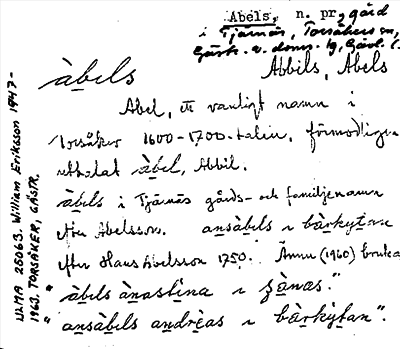 Abels, n. pr., gård
i Tjärnäs, Torsåkers sn,
Gästr. v. doms. tg, Gävl. l.
Abbils, Abels
àbels
Abel, ett vanligt namn i
Torsåker 1600-1700-talen, förmodligen
uttalat àbel, Abbil.
àbels i Tjärnäs gårds- och familjenamn
efter Abelsson. ansàbels i bàrkytan
efter Hans Abelsson 1750. Ännu (1960) bruka
"àbels ànastina i zànas."
"ansàbels andrèas i bàrkỳtan".
ULMA 25063. William Eriksson 1947-
1963. TORSÅKER, GÄSTR.